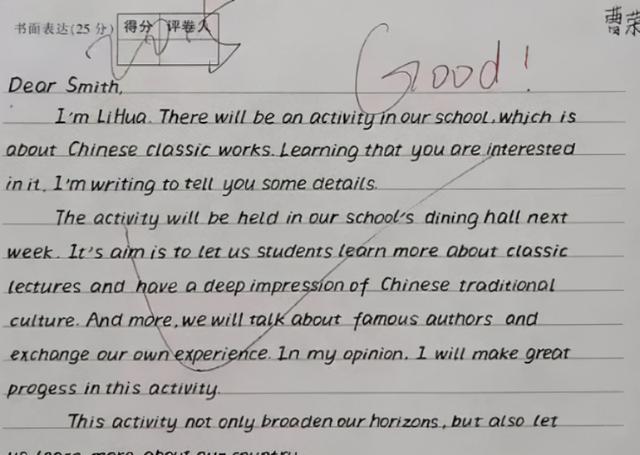 书面表达(25 分) 得分 评卷人
曹荣
Good!
Dear Smith,
I'm LiHua. There will be an activity in our school, which is
about Chinese classic works. Learning that you are interested
in it, I'm writing to tell you some details.
The activity will be held in our school's dining hall next
week. It's aim is to let us students learn more about classic
lectures and have a deep impression of Chinese traditional
culture. And more, we will talk about famous authors and
exchange our own experience. In my opinion, I will make great
progess in this activity.
This activity not only broaden our horizons, but also let
us learn more about our country